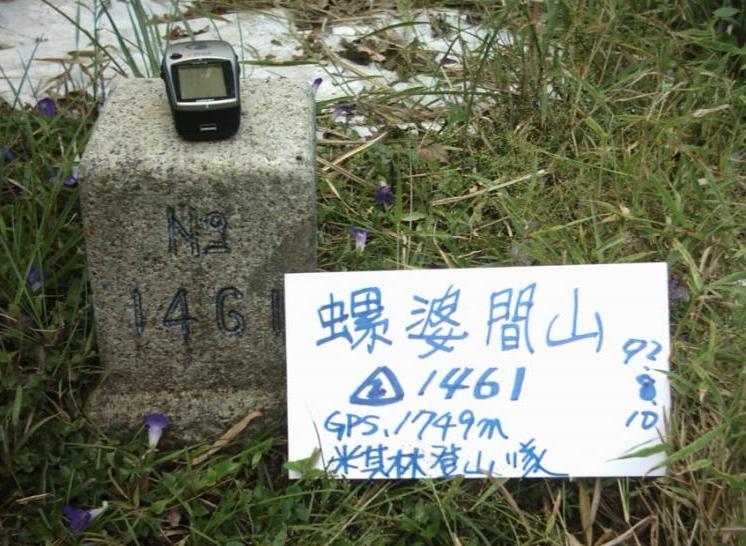 No
1461
螺婆間山
△2 1461
GPS.1749m
米其林登山隊
92.
8.
10